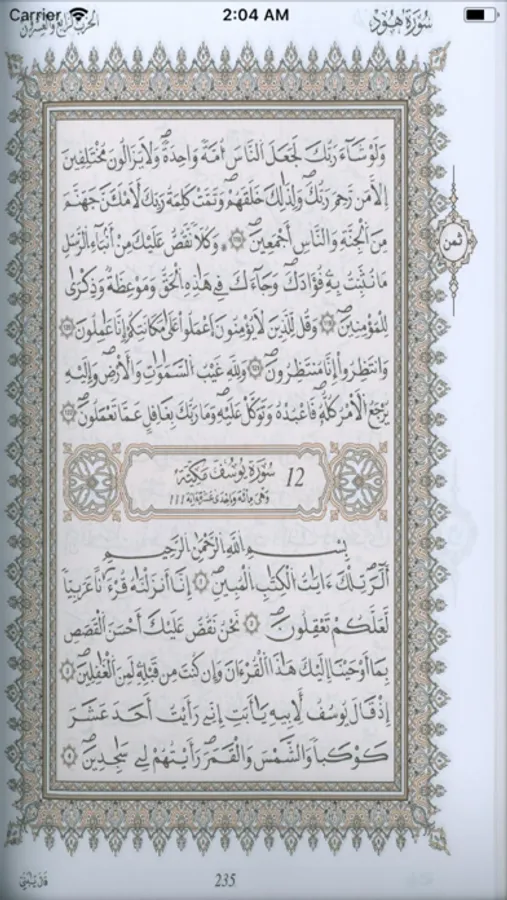 Carrier 2:04 AM
سُورَةُ هُود
الحزب الرابع والعشرون
وَلَوْ شَآءَ رَبُّكَ لَجَعَلَ اَلنَّاسَ أُمَّةً وَاحِدَةً وَلَا يَزَالُونَ مُخْتَلِفِينَ
إِلَّا مَن رَّحِمَ رَبُّكَ وَلِذَٰلِكَ خَلَقَهُمْ وَتَمَّتْ كَلِمَةُ رَبِّكَ لَأَمْلَأَنَّ جَهَنَّمَ
مِنَ اَلْجِنَّةِ وَالنَّاسِ أَجْمَعِينَ وَكُلّاً نَّقُصُّ عَلَيْكَ مِنْ أَنۢبَآءِ اِلرُّسُلِ
ثمن
مَا نُثَبِّتُ بِهِۦ فُؤَادَكَ وَجَآءَكَ فِى هَٰذِهِ اِلْحَقُّ وَمَوْعِظَةٌ وَذِكْرَىٰ
لِلْمُؤْمِنِينَ وَقُل لِّلَّذِينَ لَا يُؤْمِنُونَ اَعْمَلُوا عَلَىٰ مَكَانَتِكُمْ إِنَّا عَٰمِلُونَ
وَانتَظِرُوا إِنَّا مُنتَظِرُونَ وَلِلَّهِ غَيْبُ اُلسَّمَٰوَٰتِ وَالْأَرْضِ وَإِلَيْهِ
يُرْجَعُ اُلْأَمْرُ كُلُّهُ فَاعْبُدْهُ وَتَوَكَّلْ عَلَيْهِ وَمَا رَبُّكَ بِغَٰفِلٍ عَمَّا تَعْمَلُونَ
12 سُورَةُ يُوسُفَ مَكِّيَّة
وَهْىَ مِائَة وَإِحْدَى عَشْرَةَ ءَايَة 111
بِسْمِ اِللَّهِ اِلرَّحْمَٰنِ اِلرَّحِيمِ
أَلَٓرۚ تِلْكَ ءَايَٰتُ اُلْكِتَٰبِ اِلْمُبِينِ إِنَّا أَنزَلْنَٰهُ قُرْءَٰناً عَرَبِيّاً
لَّعَلَّكُمْ تَعْقِلُونَ نَحْنُ نَقُصُّ عَلَيْكَ أَحْسَنَ اَلْقَصَصِ
بِمَا أَوْحَيْنَا إِلَيْكَ هَٰذَا اَلْقُرْءَانَ وَإِن كُنتَ مِن قَبْلِهِۦ لَمِنَ اَلْغَٰفِلِينَ
إِذْ قَالَ يُوسُفُ لِأَبِيهِ يَٰأَبَتِ إِنِّى رَأَيْتُ أَحَدَ عَشَرَ
كَوْكَباً وَالشَّمْسَ وَالْقَمَرَ رَأَيْتُهُمْ لِى سَٰجِدِينَ
235
قَالَ يَٰبُنَىِّ